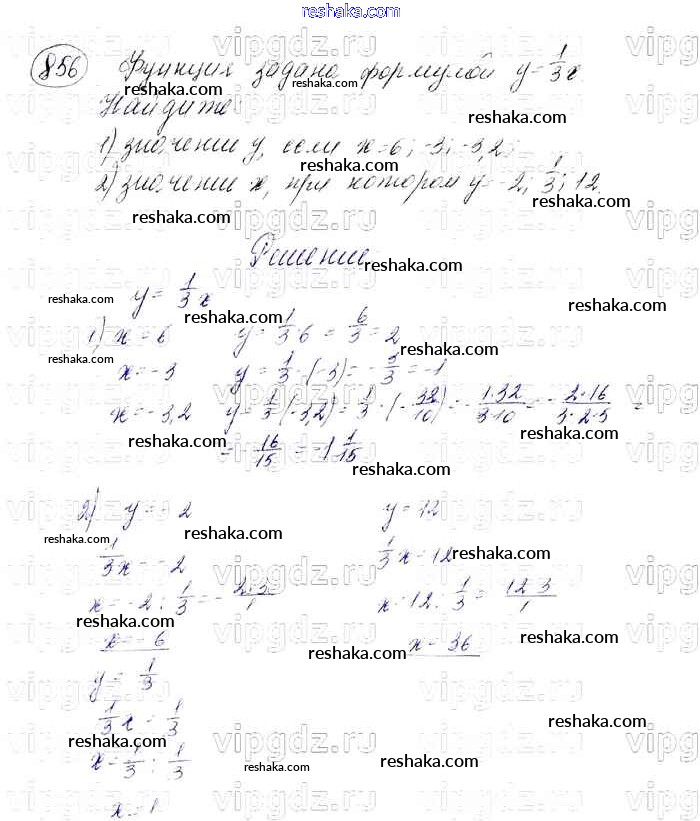 reshaka.com
856 Функция задана формулой y = 1/3 x
Найдите:
1) значение y, если x = 6; -3; -3,2;
2) значение x, при котором y = -2; 1/3; 12.
Решение
y = 1/3 x
1) x = 6 y = 1/3 · 6 = 6/3 = 2
x = -3 y = 1/3 · (-3) = -3/3 = -1
x = -3,2 y = 1/3 · (-3,2) = 1/3 · (-32/10) = -1·32/3·10 = -2·16/3·2·5 =
= -16/15 = -1 1/15
2) y = -2 y = 12
1/3 x = -2 1/3 x = 12
x = -2 : 1/3 = -2·3/1 x = 12 : 1/3 = 12·3/1
x = -6 x = 36
y = 1/3
1/3 x = 1/3
x = 1/3 : 1/3
x = 1